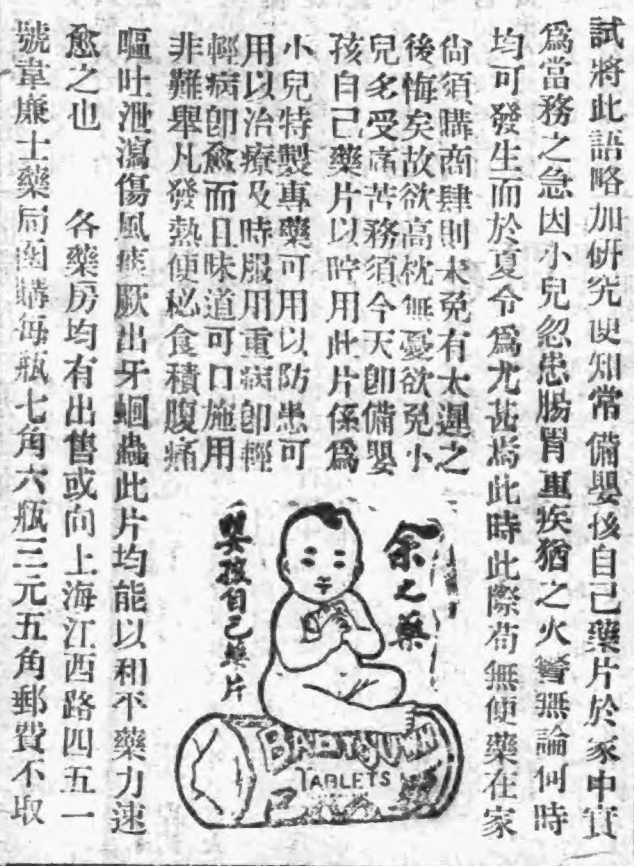 試將此語略加研究便知常備嬰孩自己藥片於家中實
爲當務之急因小兒忽患腸胃重疾猶之火警無論何時
均可發生而於夏令爲尤甚焉此時此際苟無便藥在家
尙須購商肆則未免有太遲之
後悔矣故欲高枕無憂欲免小
兒多受痛苦務須今天卽備嬰
孩自己藥片以貯用此片係爲
小兒特製專藥可用以防患可
用以治療及時服用重病卽輕
輕病卽愈而且味道可口施用
非難舉凡發熱便秘食積腹痛
嘔吐泄瀉傷風痙厥出牙蛔蟲此片均能以和平藥力速
愈之也 各藥房均有出售或向上海江西路四五一
號韋廉士藥局函購每瓶七角六瓶三元五角郵費不取
余之藥
嬰孩自己藥片
BABY'S OWN
TABLETS